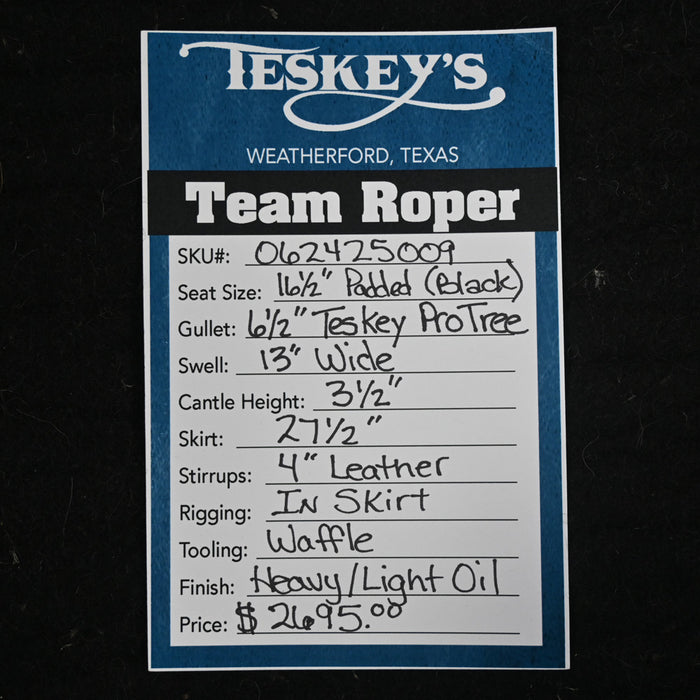 TESKEY'S
WEATHERFORD, TEXAS
Team Roper
SKU#: 062425009
Seat Size: 16½" Padded (Black)
Gullet: 6½" Teskey ProTree
Swell: 13" Wide
Cantle Height: 3½"
Skirt: 27½"
Stirrups: 4" Leather
Rigging: In Skirt
Tooling: Waffle
Finish: Heavy/Light Oil
Price: $2695.00